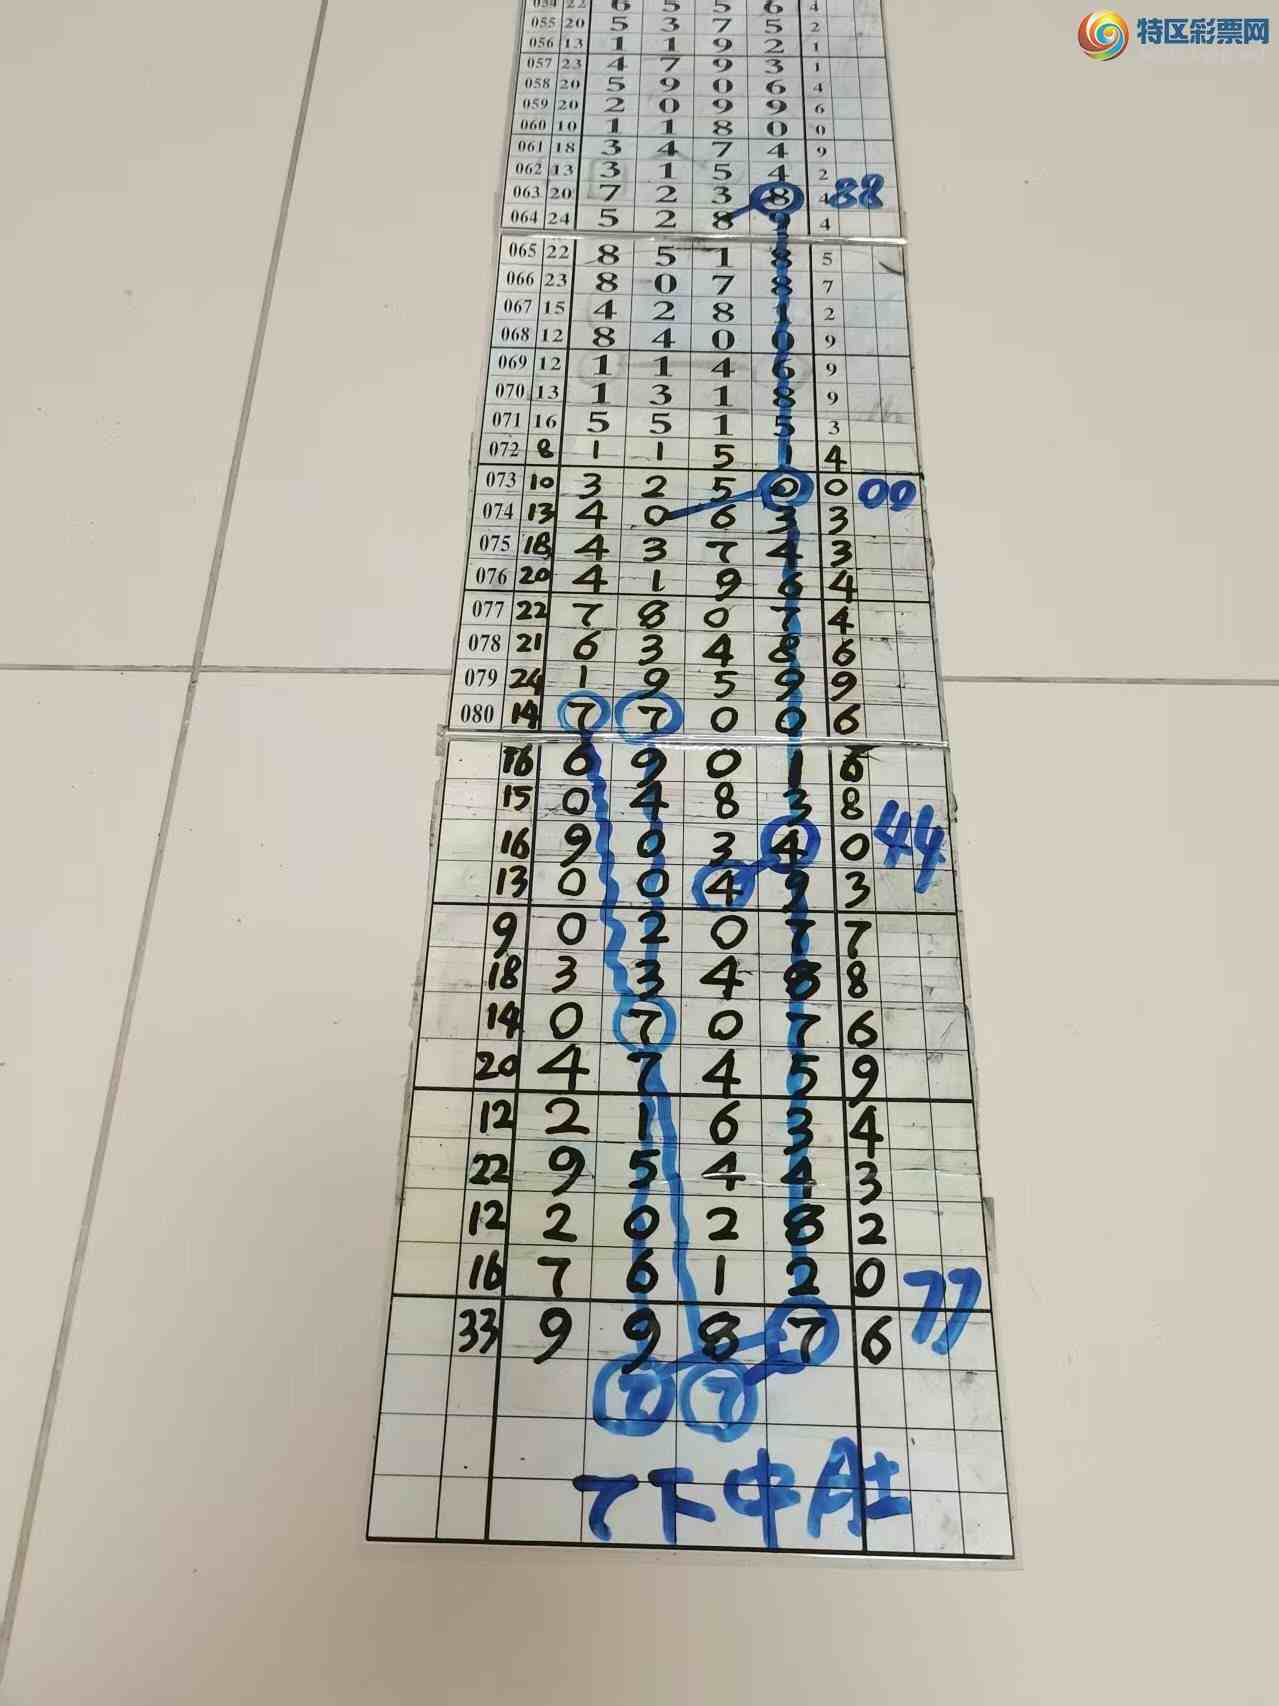 特区彩票网
054 22 6 5 5 6 4
055 20 5 3 7 5 2
056 13 1 1 9 2 1
057 23 4 7 9 3 1
058 20 5 9 0 6 4
059 20 2 0 9 9 6
060 10 1 1 8 0 0
061 18 3 4 7 4 9
062 13 3 1 5 4 2
063 20 7 2 3 8 4 88
064 24 5 2 8 9 4
065 22 8 5 1 8 5
066 23 8 0 7 8 7
067 15 4 2 8 1 2
068 12 8 4 0 0 9
069 12 1 1 4 6 9
070 13 1 3 1 8 9
071 16 5 5 1 5 3
072 8 1 1 5 1 4
073 10 3 2 5 0 0 00
074 13 4 0 6 3 3
075 18 4 3 7 4 3
076 20 4 1 9 6 4
077 22 7 8 0 7 4
078 21 6 3 4 8 6
079 24 1 9 5 9 9
080 14 7 7 0 0 6
16 6 9 0 1 6
15 0 4 8 3 8
16 9 0 3 4 0 44
13 0 0 4 9 3
9 0 2 0 7 7
18 3 3 4 8 8
14 0 7 0 7 6
20 4 7 4 5 9
12 2 1 6 3 4
22 9 5 4 4 3
12 2 0 2 8 2
16 7 6 1 2 0 77
33 9 9 8 7 6
7 7
7下中A士